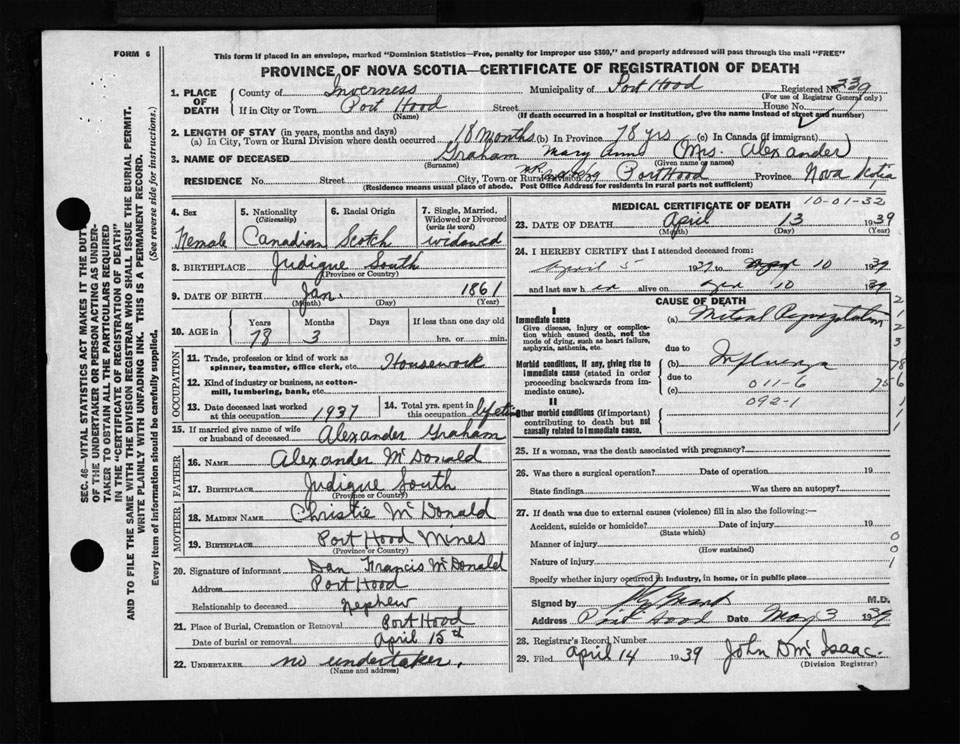 FORM 6
This form if placed in an envelope, marked "Dominion Statistics—Free, penalty for improper use $300," and properly addressed will pass through the mail "FREE"
PROVINCE OF NOVA SCOTIA—CERTIFICATE OF REGISTRATION OF DEATH
SEC. 46—VITAL STATISTICS ACT MAKES IT THE DUTY
OF THE UNDERTAKER OR PERSON ACTING AS UNDER-
TAKER TO OBTAIN ALL THE PARTICULARS REQUIRED
IN THE "CERTIFICATE OF REGISTRATION OF DEATH"
AND TO FILE THE SAME WITH THE DIVISION REGISTRAR WHO SHALL ISSUE THE BURIAL PERMIT.
WRITE PLAINLY WITH UNFADING INK. THIS IS A PERMANENT RECORD.
Every item of information should be carefully supplied. (See reverse side for instructions.)
1. PLACE OF DEATH County of Inverness Municipality of Port Hood Registered No. 239
(For use of Registrar General only)
If in City or Town Port Hood Street House No.
(Name) (If death occurred in a hospital or institution, give the name instead of street and number)
2. LENGTH OF STAY (in years, months and days)
(a) In City, Town or Rural Division where death occurred 18 Months (b) In Province 78 yrs (c) In Canada (if immigrant)
3. NAME OF DECEASED Graham Mary Anne (Mrs. Alexander)
(Surname) (Given name or names)
RESIDENCE No. Street City, Town or Rural Division of Port Hood Province Nova Scotia
(Residence means usual place of abode. Post Office Address for residents in rural parts not sufficient)
4. Sex Female
5. Nationality (Citizenship) Canadian
6. Racial Origin Scotch
7. Single, Married, Widowed or Divorced (write the word) widowed
8. BIRTHPLACE Judique South
(Province or Country)
9. DATE OF BIRTH Jan. 1861
(Month) (Day) (Year)
10. AGE in Years Months Days If less than one day old
78 3 hrs. or min.
OCCUPATION
11. Trade, profession or kind of work as spinner, teamster, office clerk, etc. Housework
12. Kind of industry or business, as cotton-mill, lumbering, bank, etc.
13. Date deceased last worked at this occupation 1937
14. Total yrs. spent in this occupation lifetime
15. If married give name of wife or husband of deceased Alexander Graham
FATHER
16. NAME Alexander McDonald
17. BIRTHPLACE Judique South
(Province or Country)
MOTHER
18. MAIDEN NAME Christie McDonald
19. BIRTHPLACE Port Hood Mines
(Province or Country)
20. Signature of informant Dan Francis McDonald
Address Port Hood
Relationship to deceased nephew
21. Place of Burial, Cremation or Removal Port Hood
Date of burial or removal April 15th
22. UNDERTAKER no undertaker.
(Name and address)
MEDICAL CERTIFICATE OF DEATH 10-01-32
23. DATE OF DEATH April 13 1939
(Month) (Day) (Year)
24. I HEREBY CERTIFY that I attended deceased from:
April 5 1939 to Apr 10 1939
and last saw h er alive on Apr 10 1939
CAUSE OF DEATH
I
Immediate cause (a) Mitral Regurgitation
Give disease, injury or complication which caused death, not the mode of dying, such as heart failure, asphyxia, asthenia, etc.
due to
Morbid conditions, if any, giving rise to immediate cause (stated in order proceeding backwards from immediate cause).
(b) Influenza
due to 011-6
(c) 092-1
II
Other morbid conditions (if important) contributing to death but not causally related to immediate cause.
25. If a woman, was the death associated with pregnancy?
26. Was there a surgical operation? Date of operation 19
State findings Was there an autopsy?
27. If death was due to external causes (violence) fill in also the following:—
Accident, suicide or homicide? Date of injury 19
(State which)
Manner of injury
(How sustained)
Nature of injury
Specify whether injury occurred in industry, in home, or in public place
Signed by M.D.
Address Port Hood Date May 3 1939
28. Registrar's Record Number
29. Filed April 14 1939 John D McIsaac.
(Division Registrar)